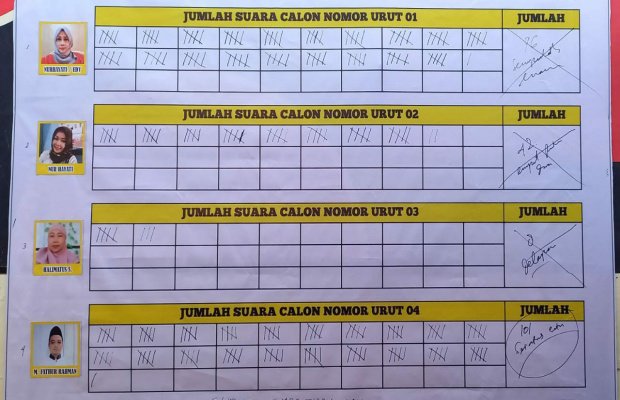 JUMLAH SUARA CALON NOMOR URUT 01 JUMLAH
1
NURHAYATI / EDY
JUMLAH SUARA CALON NOMOR URUT 02 JUMLAH
2
42
NUR HAYATI
JUMLAH SUARA CALON NOMOR URUT 03 JUMLAH
3
8
Delapan
HALIMATUS S.
JUMLAH SUARA CALON NOMOR URUT 04 JUMLAH
4
101
M. FATHUR RAHMAN